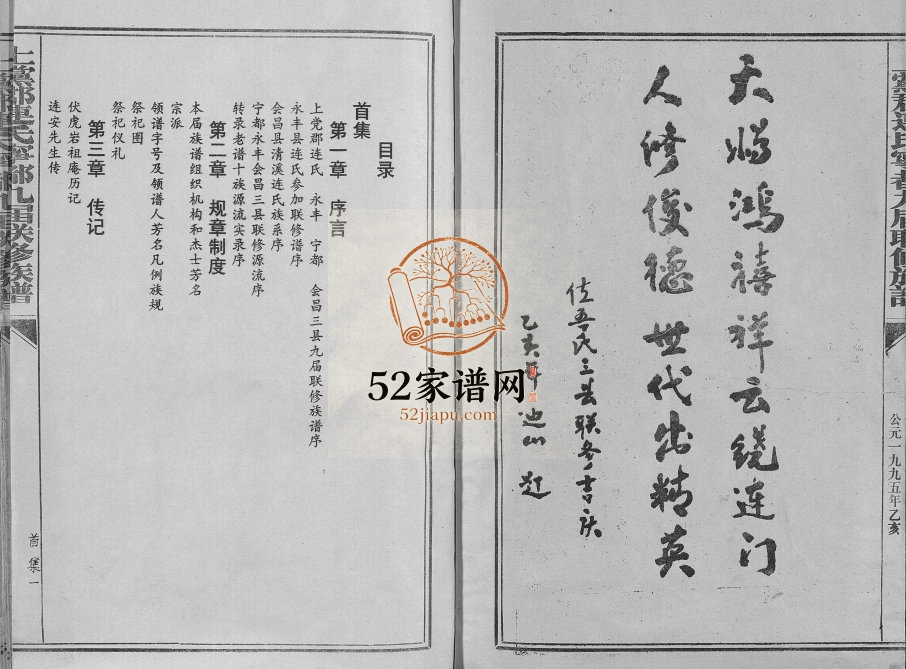 天赐鸿禧祥云绕连门
人修俊德世代出精英
乙亥年 迪山 题
公元一九九五年乙亥
目录
首集
第一章 序言
上党郡连氏 永丰 宁都 会昌三县九届联修族谱序
永丰县连氏参加联修谱序
会昌县清溪连氏族系序
宁都永丰会昌三县联修源流序
转录老谱十族源流实录序
第二章 规章制度
本届族谱组织机构和杰士芳名
宗派
领谱字号及领谱人芳名凡例族规
祭祀图
祭祀仪礼
第三章 传记
伏虎岩祖庵历记
连安先生传
上党郡连氏宁都九届联修族谱
首集一
52家谱网
52jiapu.com